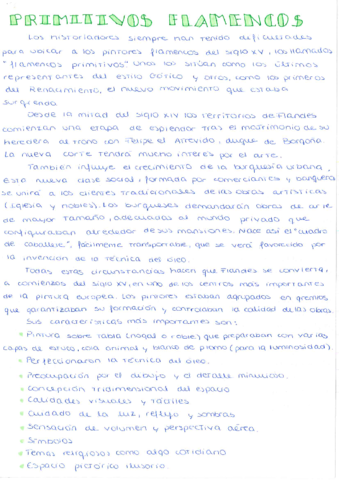 PRIMITIVOS FLAMENCOS
Los historiadores siempre han tenido dificultades
para ubicar a los pintores flamencos del siglo XV, los llamados
"flamencos primitivos". Unos los sitúan como los últimos
representantes del estilo Gótico y otros, como los primeros
del Renacimiento, el nuevo movimiento que estaba
surgiendo.
Desde la mitad del siglo XIV los territorios de Flandes
comienzan una etapa de esplendor tras el matrimonio de su
heredera al trono con Felipe el Atrevido, duque de Borgoña.
La nueva corte tendrá mucho interés por el arte.
También influye el crecimiento de la burguesía urbana,
este nueva clase social formada por comerciantes y banqueros
se unirá a los clientes tradicionales de las obras artísticas
(Iglesia y nobles). Los burgueses demandarán obras de arte
de mayor tamaño, adecuadas al mundo privado que
configuraban alrededor de sus mansiones. Nace así el "cuadro
de caballete", fácilmente transportable, que se verá favorecido por
la invención de la técnica del óleo.
Todas estas circunstancias hacen que Flandes se convierta,
a comienzos del siglo XV, en uno de los centros más importantes
de la pintura europea. Los pintores estaban agrupados en gremios
que garantizaban su formación y controlaban la calidad de las obras.
Sus características más importantes son:
• Pintura sobre tabla (nogal o roble) que preparaban con varias
capas de estuco, cola animal y blanco de plomo (para la luminosidad).
• Perfeccionaron la técnica del óleo.
• Preocupación por el dibujo y el detalle minucioso.
• Concepción tridimensional del espacio
• Calidades visuales y táctiles
• Cuidado de la luz, reflejo y sombras
• Sensación de volumen y perspectiva aérea.
• Símbolos
• Temas religiosos como algo cotidiano
• Espacio pictórico ilusorio